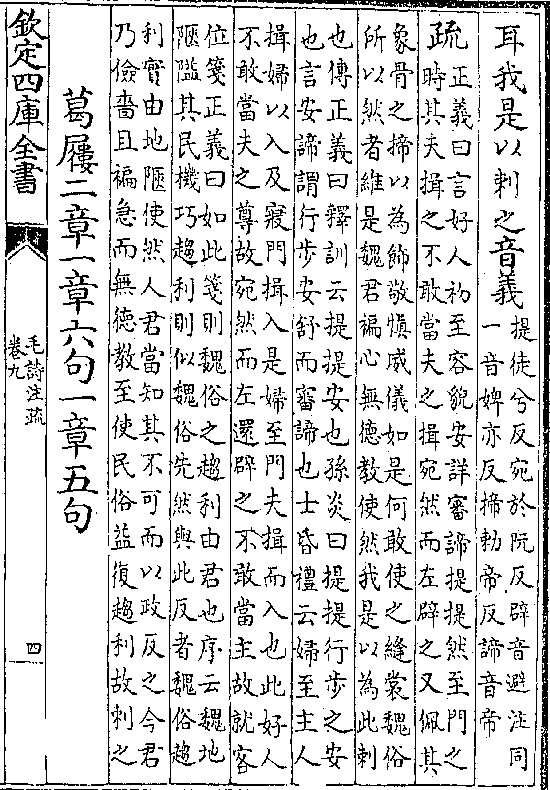 耳我是以刺之音義提徒兮反宛於阮反辟音避注同
一音婢亦反揥勅帝反諦音帝
疏正義曰言好人初至容貌安詳審諦提提然至門之
時其夫揖之不敢當夫之揖宛然而左辟之又佩其
象骨之揥以為飾敬慎威儀如是何敢使之縫裳魏俗
所以然者維是魏君褊心無德教使然我是以為此刺
也傳正義曰釋訓云提提安也孫炎曰提提行步之安
也言安諦謂行步安舒而審諦也士昏禮云婦至主人
揖婦以入及寢門揖入是婦至門夫揖而入也此好人
不敢當夫之尊故宛然而左還辟之不敢當主故就客
位箋正義曰如此箋則魏俗之趨利由君也序云魏地
陿隘其民機巧趨利則似魏俗先然與此反者魏俗趨
利實由地陿使然人君當知其不可而以政反之今君
乃儉嗇且褊急而無德教至使民俗益復趨利故刺之
葛屨二章一章六句一章五句
欽定四庫全書
毛詩注疏
卷九
四